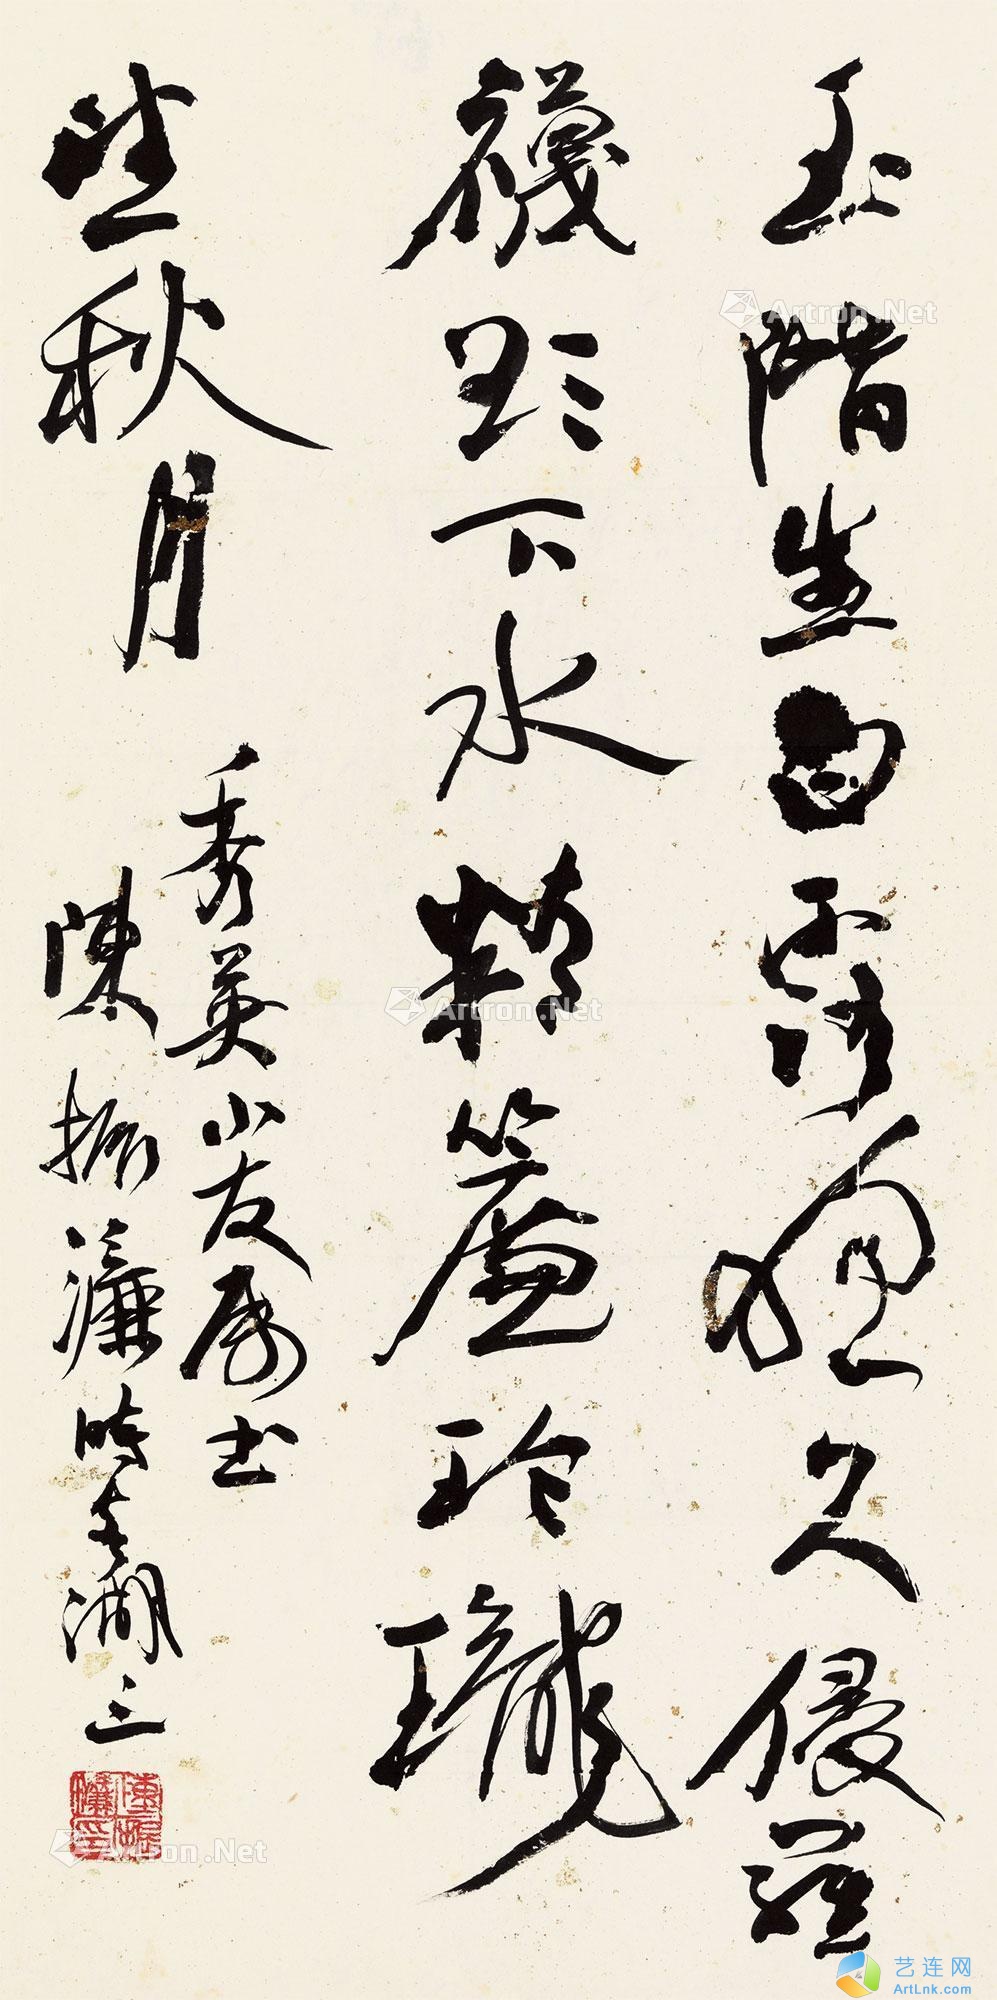 玉階生白露夜久侵羅
襪却下水精簾玲瓏
望秋月
秀英小友属书
陳振濂時客湖上
陳振濂印
Artron.Net
Artron.Net
Artron.Net
艺连网
ArtLnk.com